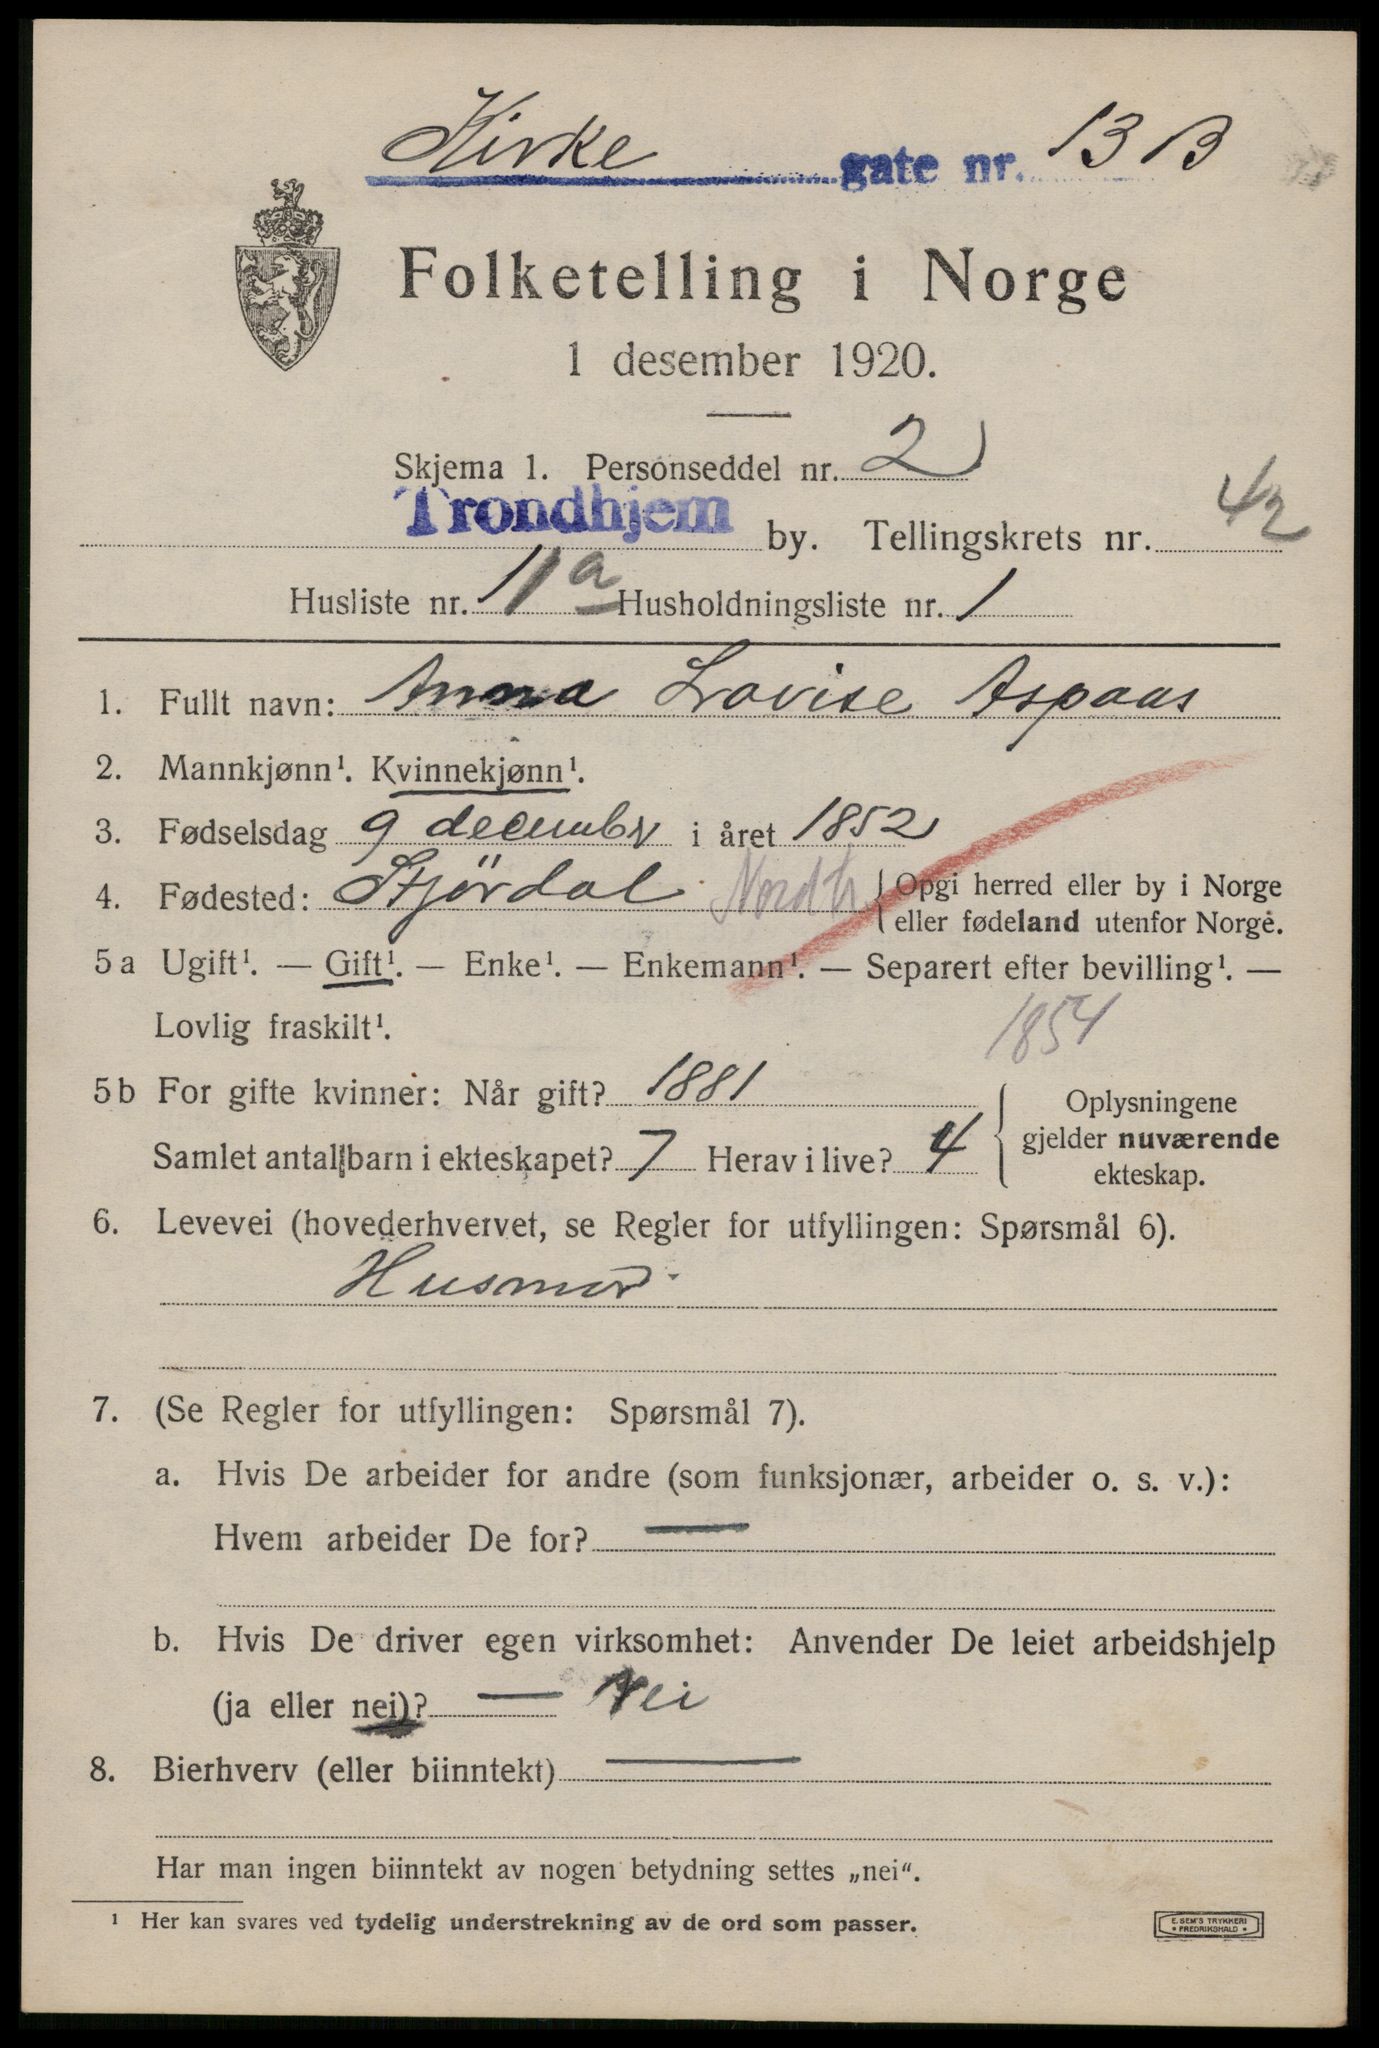 Kirke gate nr. 13 B
Folketelling i Norge
1 desember 1920.
Skjema 1. Personseddel nr. 2
Trondhjem by. Tellingskrets nr. 42
Husliste nr. 11a Husholdningsliste nr. 1
1. Fullt navn: Anna Lovise Aspaas
2. Mannkjønn¹. Kvinnekjønn¹.
3. Fødselsdag 9 decembr i året 1852
4. Fødested: Stjördal Nordtr. { Opgi herred eller by i Norge
eller fødeland utenfor Norge.
5a Ugift¹. — Gift¹. — Enke¹. — Enkemann¹. — Separert efter bevilling¹. —
Lovlig fraskilt¹.
1854
5b For gifte kvinner: Når gift? 1881
Samlet antall barn i ekteskapet? 7 Herav i live? 4
Oplysningene
gjelder nuværende
ekteskap.
6. Levevei (hovederhvervet, se Regler for utfyllingen: Spørsmål 6).
Husmor
7. (Se Regler for utfyllingen: Spørsmål 7).
a. Hvis De arbeider for andre (som funksjonær, arbeider o. s. v.):
Hvem arbeider De for? —
b. Hvis De driver egen virksomhet: Anvender De leiet arbeidshjelp
(ja eller nei)? — Nei
8. Bierhverv (eller biinntekt) —
Har man ingen biinntekt av nogen betydning settes „nei“.
¹ Her kan svares ved tydelig understrekning av de ord som passer.
E. SEM'S TRYKKERI
• FREDRIKSHALD •